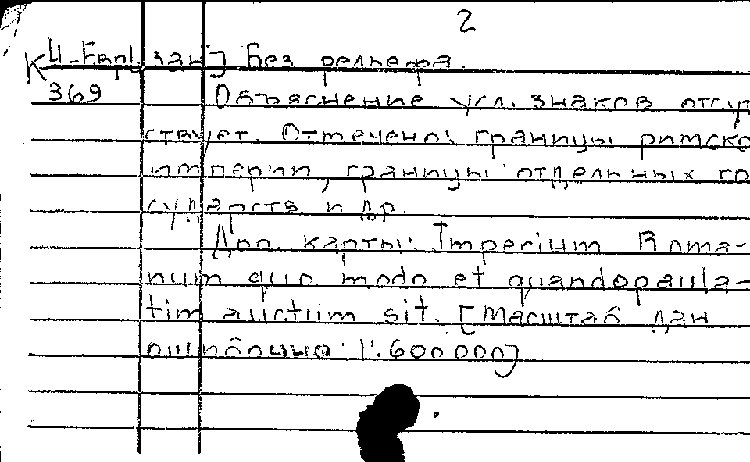 2
К Ц-Евр. зап] Без рельефа.
369 Объяснение усл. знаков отсут
ствует. Отмечено: границы римско
империи, границы отдельных го
сударств и др.
Доп. карты: Imperium Roma-
num quo modo et quandopaula-
tim auctum sit. [Масштаб дан
ошибочно 1:600000]